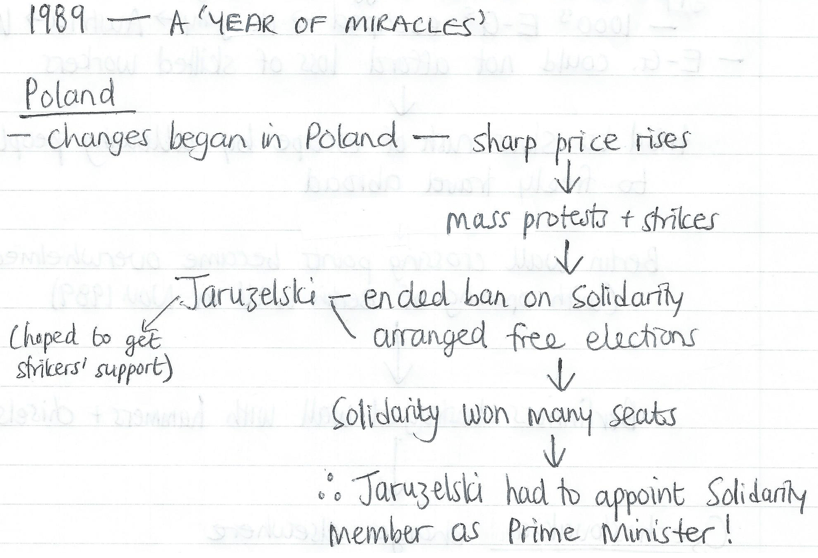 1989 — A 'YEAR OF MIRACLES'
Poland
— changes began in Poland — sharp price rises
↓
mass protests + strikes
↓
Jaruzelski — ended ban on Solidarity
(hoped to get strikers' support)
arranged free elections
↓
Solidarity won many seats
↓
∴ Jaruzelski had to appoint Solidarity
member as Prime Minister!